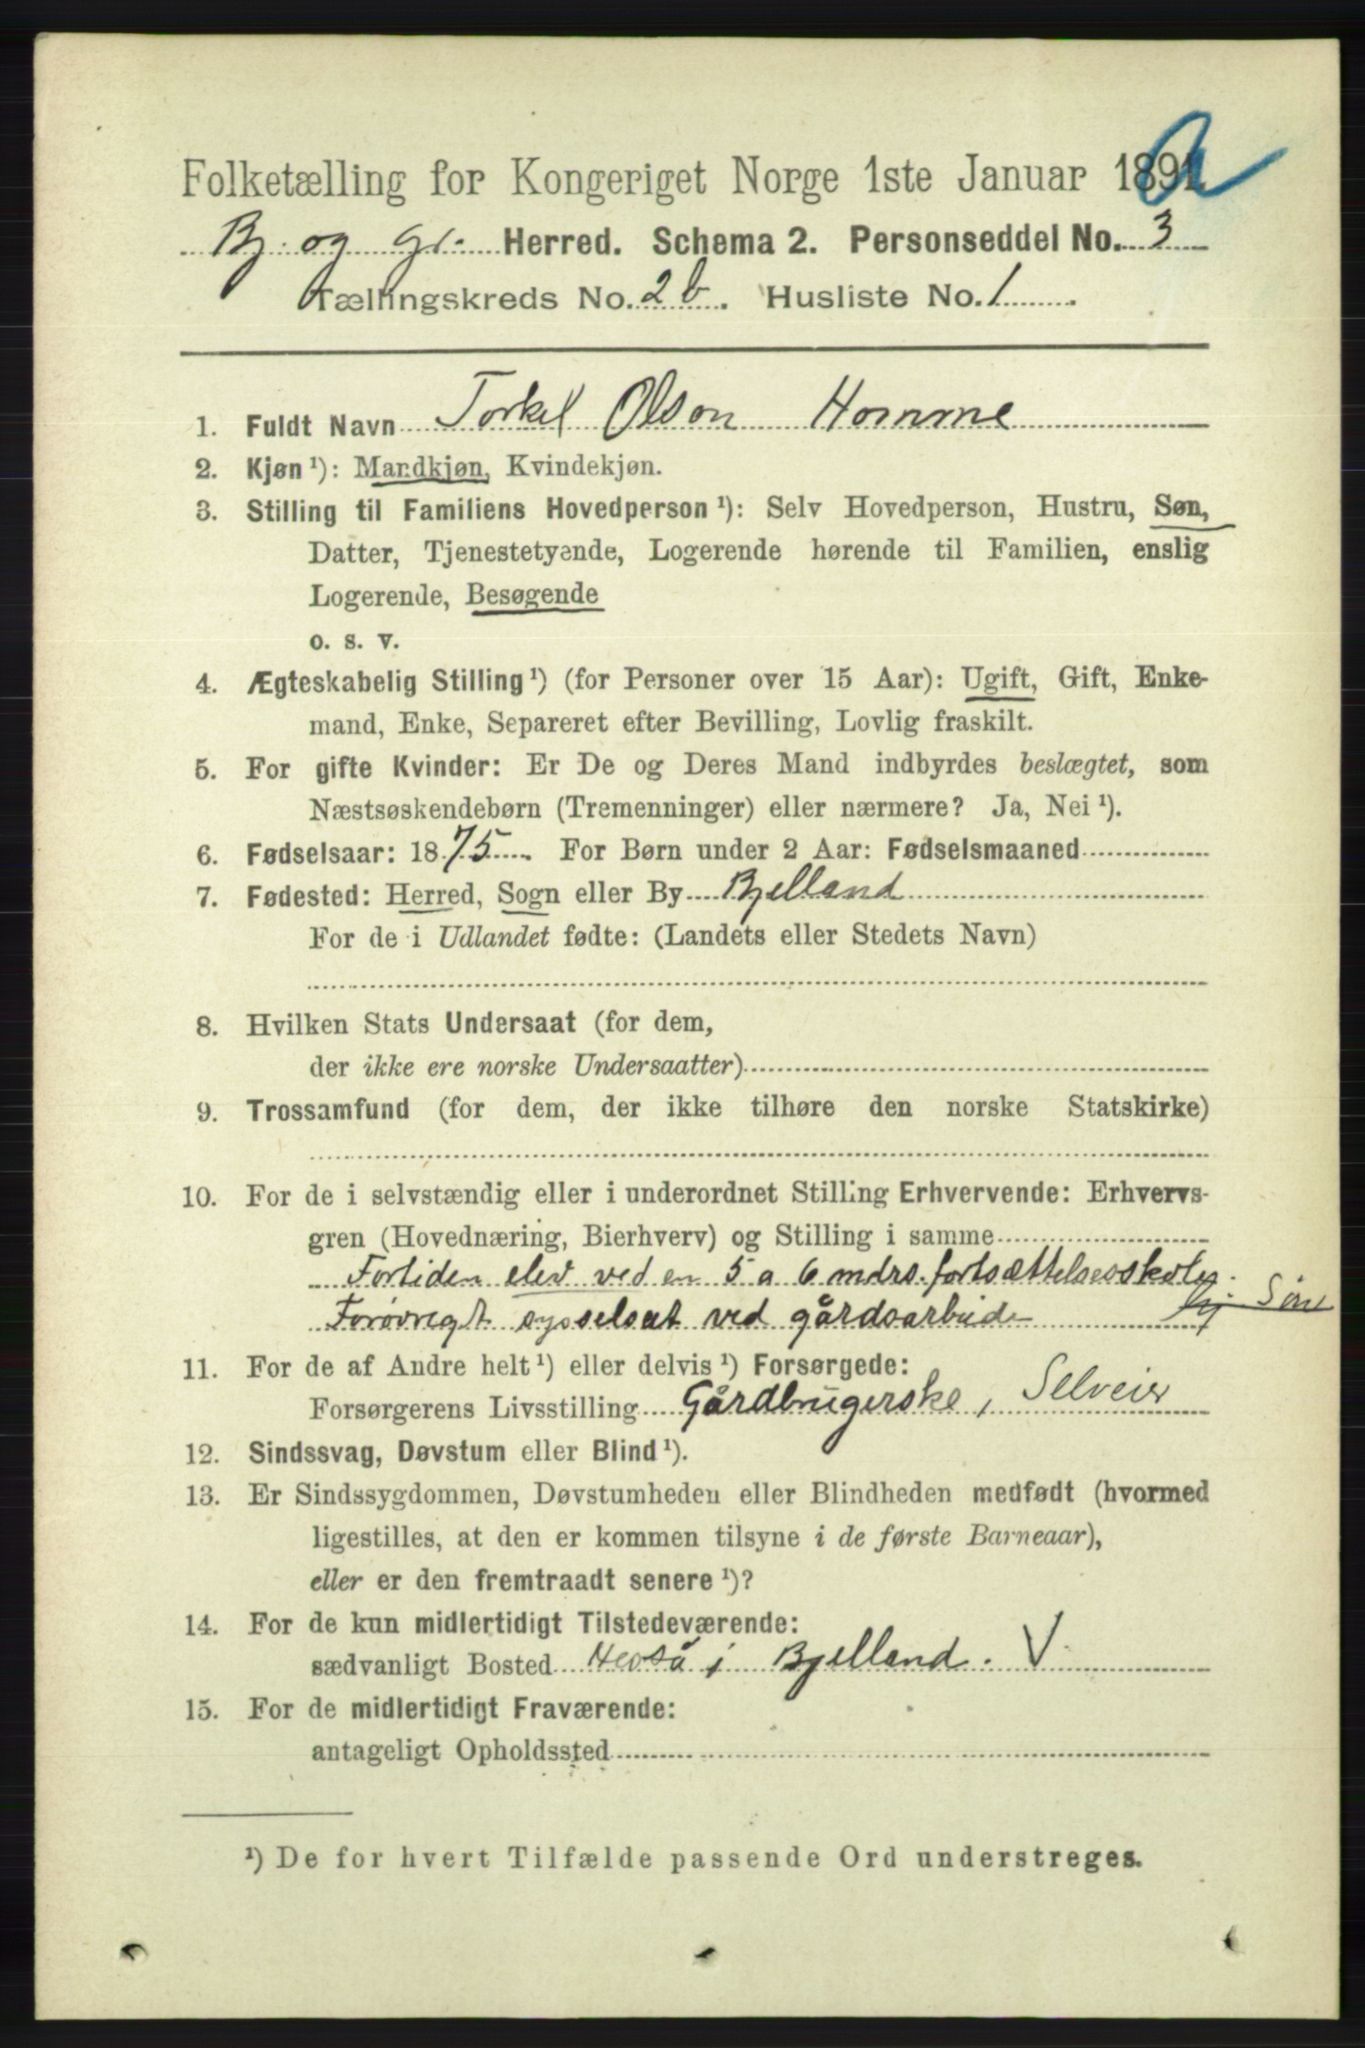 Folketælling for Kongeriget Norge 1ste Januar 1891
Bj. og Gr. Herred. Schema 2. Personseddel No. 3
Tællingskreds No. 2b. Husliste No. 1
1. Fuldt Navn Torkel Olson Homme
2. Kjøn ¹): Mandkjøn, Kvindekjøn.
3. Stilling til Familiens Hovedperson ¹): Selv Hovedperson, Hustru, Søn,
Datter, Tjenestetyende, Logerende hørende til Familien, enslig
Logerende, Besøgende
o. s. v.
4. Ægteskabelig Stilling ¹) (for Personer over 15 Aar): Ugift, Gift, Enke-
mand, Enke, Separeret efter Bevilling, Lovlig fraskilt.
5. For gifte Kvinder: Er De og Deres Mand indbyrdes beslægtet, som
Næstsøskendebørn (Tremenninger) eller nærmere? Ja, Nei ¹).
6. Fødselsaar: 1875. For Børn under 2 Aar: Fødselsmaaned
7. Fødested: Herred, Sogn eller By Bjelland
For de i Udlandet fødte: (Landets eller Stedets Navn)
8. Hvilken Stats Undersaat (for dem,
der ikke ere norske Undersaatter)
9. Trossamfund (for dem, der ikke tilhøre den norske Statskirke)
10. For de i selvstændig eller i underordnet Stilling Erhvervende: Erhvervs-
gren (Hovednæring, Bierhverv) og Stilling i samme
Fortiden elev ved en 5 a 6 mdrs. fortsættelsesskole.
Forøvrigt sysselsat ved gårdsarbeide Søn
11. For de af Andre helt ¹) eller delvis ¹) Forsørgede:
Forsørgerens Livsstilling Gårdbrugerske, Selveier
12. Sindssvag, Døvstum eller Blind ¹).
13. Er Sindssygdommen, Døvstumheden eller Blindheden medfødt (hvormed
ligestilles, at den er kommen tilsyne i de første Barneaar),
eller er den fremtraadt senere ¹)?
14. For de kun midlertidigt Tilstedeværende:
sædvanligt Bosted i Bjelland. V
15. For de midlertidigt Fraværende:
antageligt Opholdssted
¹) De for hvert Tilfælde passende Ord understreges.